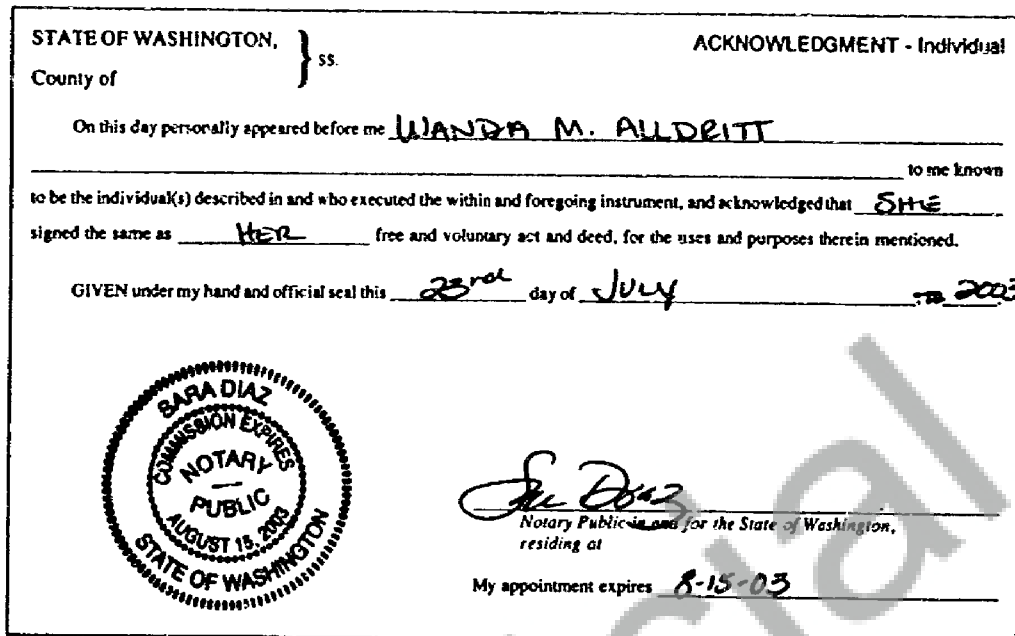 STATE OF WASHINGTON,
ss.
ACKNOWLEDGMENT - Individual
County of
On this day personally appeared before me WANDA M. ALLDRITT
to me known
to be the individual(s) described in and who executed the within and foregoing instrument, and acknowledged that SHE
signed the same as HER free and voluntary act and deed, for the uses and purposes therein mentioned.
GIVEN under my hand and official seal this 23rd day of JULY 2003
SARA DIAZ
COMMISSION EXPIRES
NOTARY
PUBLIC
AUGUST 15, 2003
STATE OF WASHINGTON
Notary Public in and for the State of Washington,
residing at
My appointment expires 8-15-03